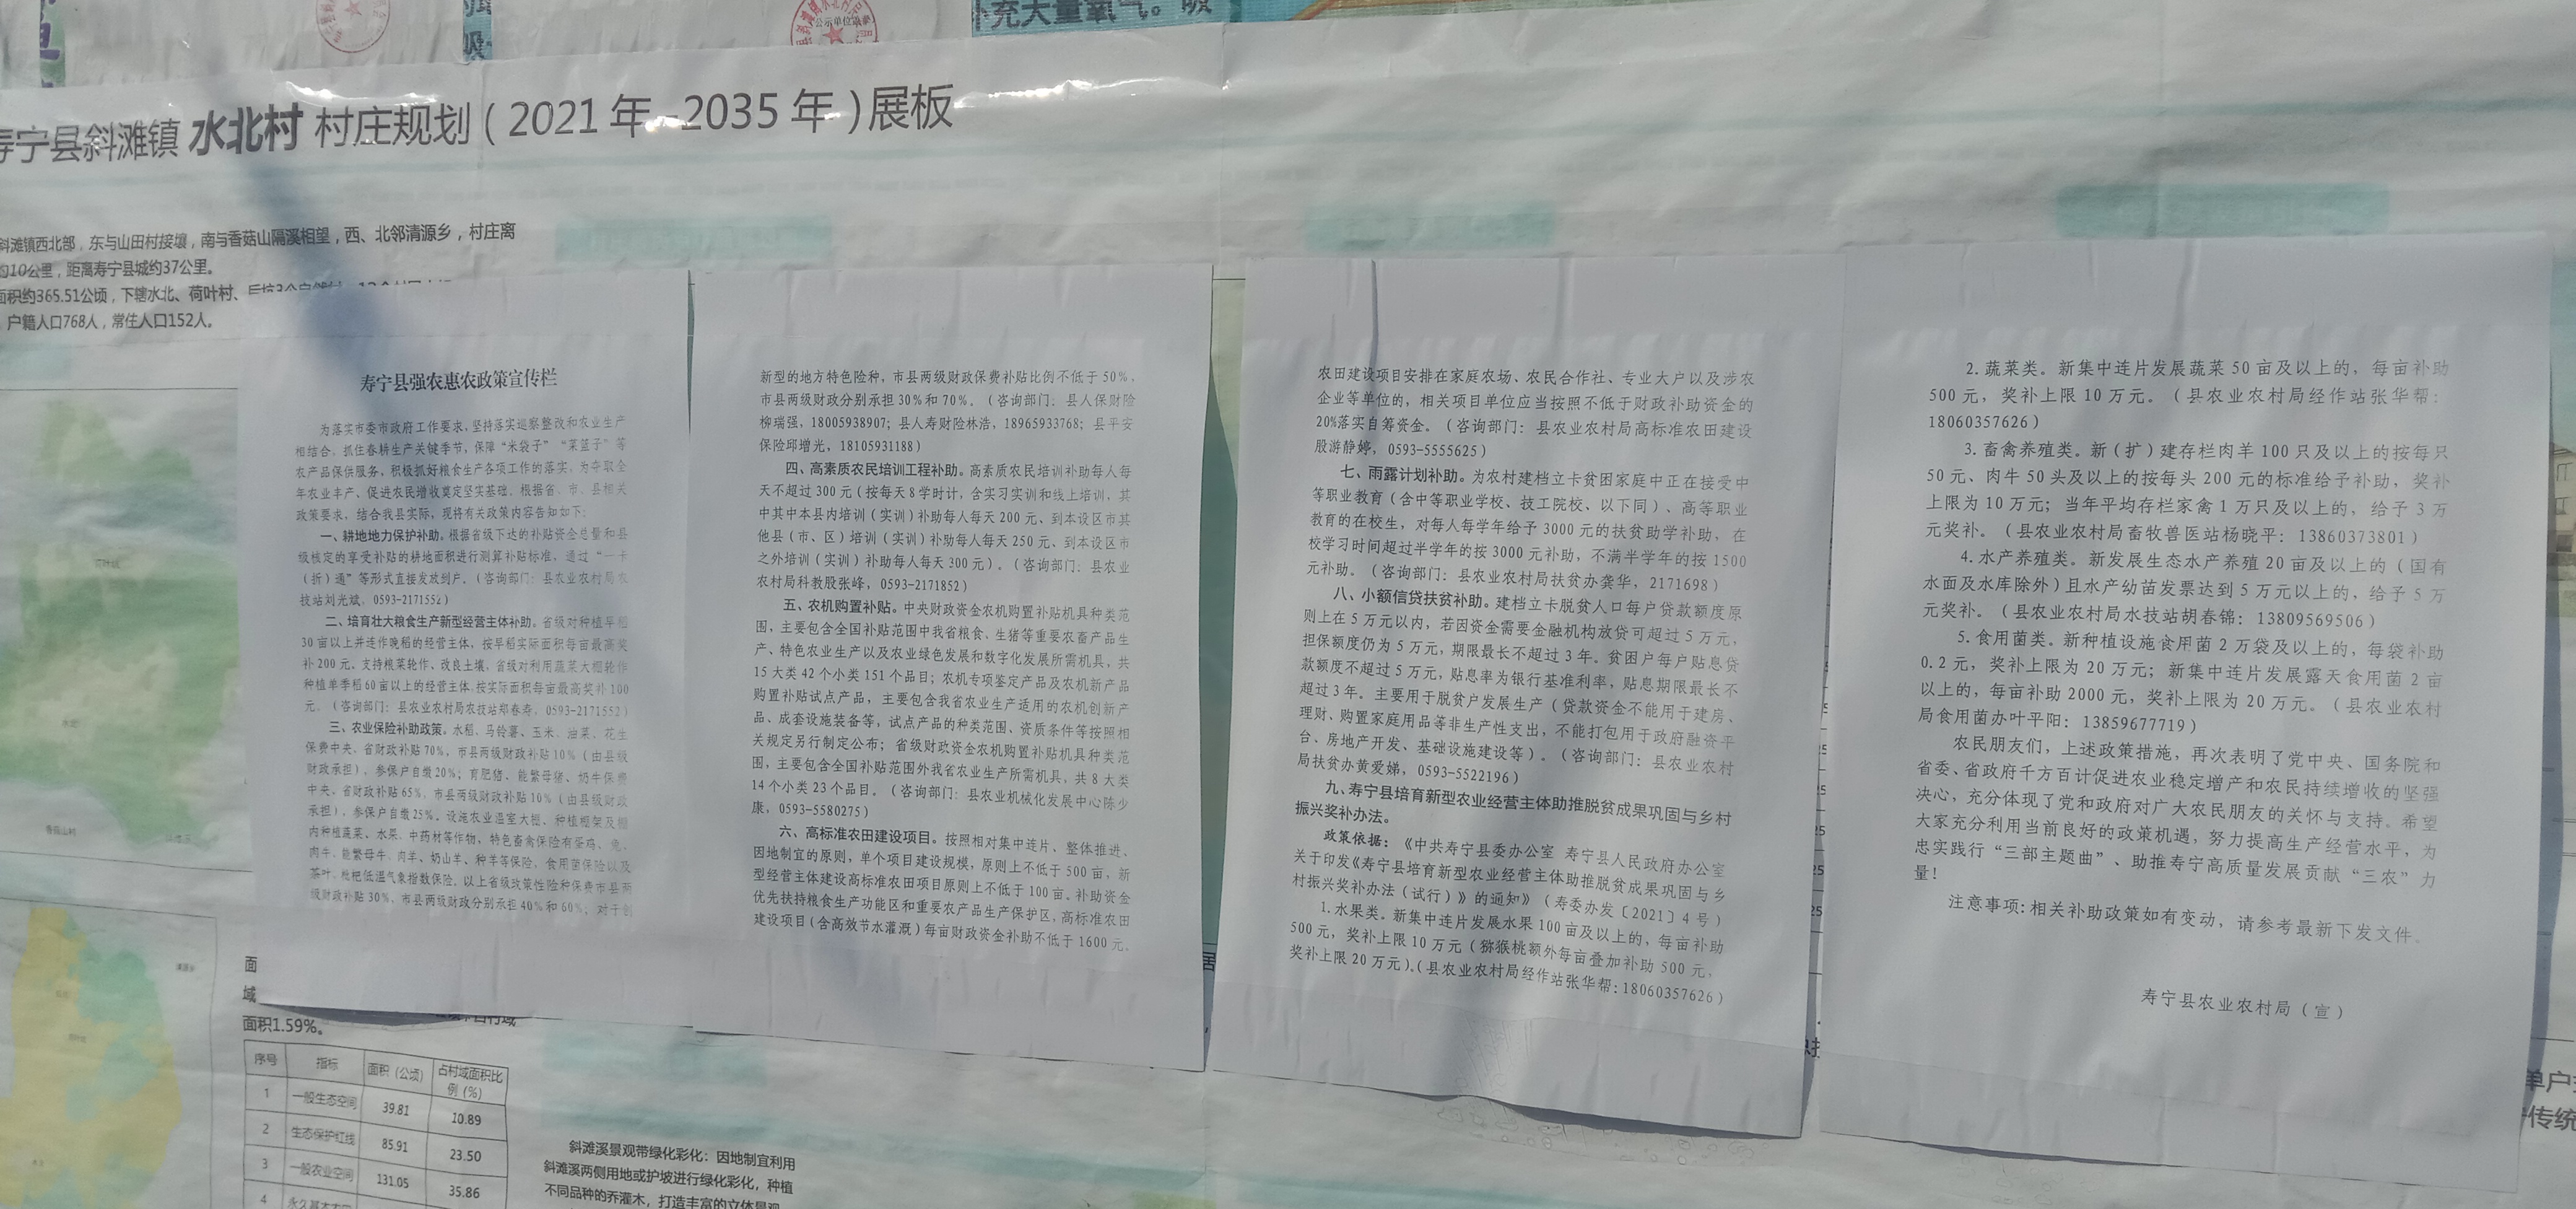 补充大量氧气。吸
公示单位
寿宁县斜滩镇 水北村 村庄规划（2021年-2035年）展板
斜滩镇西北部，东与山田村接壤，南与香菇山隔溪相望，西、北邻清源乡，村庄离
约10公里，距离寿宁县城约37公里。
面积约365.51公顷，下辖水北、荷叶村、
户籍人口768人，常住人口152人。
寿宁县强农惠农政策宣传栏
为落实市委市政府工作要求，坚持落实巡察整改和农业生产
相结合，抓住春耕生产关键季节，保障“米袋子”“菜篮子”等
农产品保供服务，积极抓好粮食生产各项工作的落实，为夺取全
年农业丰产、促进农民增收奠定坚实基础，根据省、市、县相关
政策要求，结合我县实际，现将有关政策内容告知如下：
一、耕地地力保护补助。根据省级下达的补贴资金总量和县
级核定的享受补贴的耕地面积进行测算补贴标准，通过“一卡
（折）通”等形式直接发放到户。（咨询部门：县农业农村局农
技站刘光斌，0593-2171552）
二、培育壮大粮食生产新型经营主体补助。省级对种植早稻
30亩以上并连作晚稻的经营主体，按早稻实际面积每亩最高奖
补200元。支持粮菜轮作、改良土壤，省级对利用蔬菜大棚轮作
种植单季稻60亩以上的经营主体，按实际面积每亩最高奖补100
元。（咨询部门：县农业农村局农技站郑春寿，0593-2171552）
三、农业保险补助政策。水稻、马铃薯、玉米、油菜、花生
保费中央、省财政补贴70%，市县两级财政补贴10%（由县级
财政承担），参保户自缴20%；育肥猪、能繁母猪、奶牛保费
中央、省财政补贴65%，市县两级财政补贴10%（由县级财政
承担），参保户自缴25%。设施农业温室大棚、种植棚架及棚
内种植蔬菜、水果、中药材等作物，特色畜禽保险有蛋鸡、兔、
肉牛、能繁母牛、肉羊、奶山羊、种羊等保险，食用菌保险以及
茶叶、枇杷低温气象指数保险，以上省级政策性险种保费市县两
级财政补贴30%，市县两级财政分别承担40%和60%；对于创
新型的地方特色险种，市县两级财政保费补贴比例不低于50%，
市县两级财政分别承担30%和70%。（咨询部门：县人保财险
柳瑞强，18005938907；县人寿财险林浩，18965933768；县平安
保险邱增光，18105931188）
四、高素质农民培训工程补助。高素质农民培训补助每人每
天不超过300元（按每天8学时计，含实习实训和线上培训，其
中其中本县内培训（实训）补助每人每天200元、到本设区市其
他县（市、区）培训（实训）补助每人每天250元、到本设区市
之外培训（实训）补助每人每天300元）。（咨询部门：县农业
农村局科教股张峰，0593-2171852）
五、农机购置补贴。中央财政资金农机购置补贴机具种类范
围，主要包含全国补贴范围中我省粮食、生猪等重要农畜产品生
产、特色农业生产以及农业绿色发展和数字化发展所需机具，共
15大类42个小类151个品目；农机专项鉴定产品及农机新产品
购置补贴试点产品，主要包含我省农业生产适用的农机创新产
品、成套设施装备等，试点产品的种类范围、资质条件等按照相
关规定另行制定公布；省级财政资金农机购置补贴机具种类范
围，主要包含全国补贴范围外我省农业生产所需机具，共8大类
14个小类23个品目。（咨询部门：县农业机械化发展中心陈少
康，0593-5580275）
六、高标准农田建设项目。按照相对集中连片、整体推进、
因地制宜的原则，单个项目建设规模，原则上不低于500亩，新
型经营主体建设高标准农田项目原则上不低于100亩。补助资金
优先扶持粮食生产功能区和重要农产品生产保护区，高标准农田
建设项目（含高效节水灌溉）每亩财政资金补助不低于1600元。
农田建设项目安排在家庭农场、农民合作社、专业大户以及涉农
企业等单位的，相关项目单位应当按照不低于财政补助资金的
20%落实自筹资金。（咨询部门：县农业农村局高标准农田建设
股游静婷，0593-5555625）
七、雨露计划补助。为农村建档立卡贫困家庭中正在接受中
等职业教育（含中等职业学校、技工院校、以下同）、高等职业
教育的在校生，对每人每学年给予3000元的扶贫助学补助，在
校学习时间超过半学年的按3000元补助，不满半学年的按1500
元补助。（咨询部门：县农业农村局扶贫办龚华，2171698）
八、小额信贷扶贫补助。建档立卡脱贫人口每户贷款额度原
则上在5万元以内，若因资金需要金融机构放贷可超过5万元，
担保额度仍为5万元，期限最长不超过3年。贫困户每户贴息贷
款额度不超过5万元，贴息率为银行基准利率，贴息期限最长不
超过3年。主要用于脱贫户发展生产（贷款资金不能用于建房、
理财、购置家庭用品等非生产性支出，不能打包用于政府融资平
台、房地产开发、基础设施建设等）。（咨询部门：县农业农村
局扶贫办黄爱娣，0593-5522196）
九、寿宁县培育新型农业经营主体助推脱贫成果巩固与乡村
振兴奖补办法。
政策依据：《中共寿宁县委办公室 寿宁县人民政府办公室
关于印发《寿宁县培育新型农业经营主体助推脱贫成果巩固与乡
村振兴奖补办法（试行）》的通知》（寿委办发〔2021〕4号）
1.水果类。新集中连片发展水果100亩及以上的，每亩补助
500元，奖补上限10万元（猕猴桃额外每亩叠加补助500元，
奖补上限20万元）。（县农业农村局经作站张华帮：18060357626）
2.蔬菜类。新集中连片发展蔬菜50亩及以上的，每亩补助
500元，奖补上限10万元。（县农业农村局经作站张华帮：
18060357626）
3.畜禽养殖类。新（扩）建存栏肉羊100只及以上的按每只
50元、肉牛50头及以上的按每头200元的标准给予补助，奖补
上限为10万元；当年平均存栏家禽1万只及以上的，给予3万
元奖补。（县农业农村局畜牧兽医站杨晓平：13860373801）
4.水产养殖类。新发展生态水产养殖20亩及以上的（国有
水面及水库除外）且水产幼苗发票达到5万元以上的，给予5万
元奖补。（县农业农村局水技站胡春锦：13809569506）
5.食用菌类。新种植设施食用菌2万袋及以上的，每袋补助
0.2元，奖补上限为20万元；新集中连片发展露天食用菌2亩
以上的，每亩补助2000元，奖补上限为20万元。（县农业农村
局食用菌办叶平阳：13859677719）
农民朋友们，上述政策措施，再次表明了党中央、国务院和
省委、省政府千方百计促进农业稳定增产和农民持续增收的坚强
决心，充分体现了党和政府对广大农民朋友的关怀与支持。希望
大家充分利用当前良好的政策机遇，努力提高生产经营水平，为
忠实践行“三部主题曲”、助推寿宁高质量发展贡献“三农”力
量！
注意事项：相关补助政策如有变动，请参考最新下发文件。
寿宁县农业农村局（宣）
面
域
面积1.59%。
序号 指标 面积（公顷） 占村域面积比例（%）
1 一般生态空间 39.81 10.89
2 生态保护红线 85.91 23.50
3 一般农业空间 131.05 35.86
4
斜滩溪景观带绿化彩化：因地制宜利用
斜滩溪两侧用地或护坡进行绿化彩化，种植
不同品种的乔灌木，打造丰富的立体景观
居
单户
传统
香菇山村
荷叶村